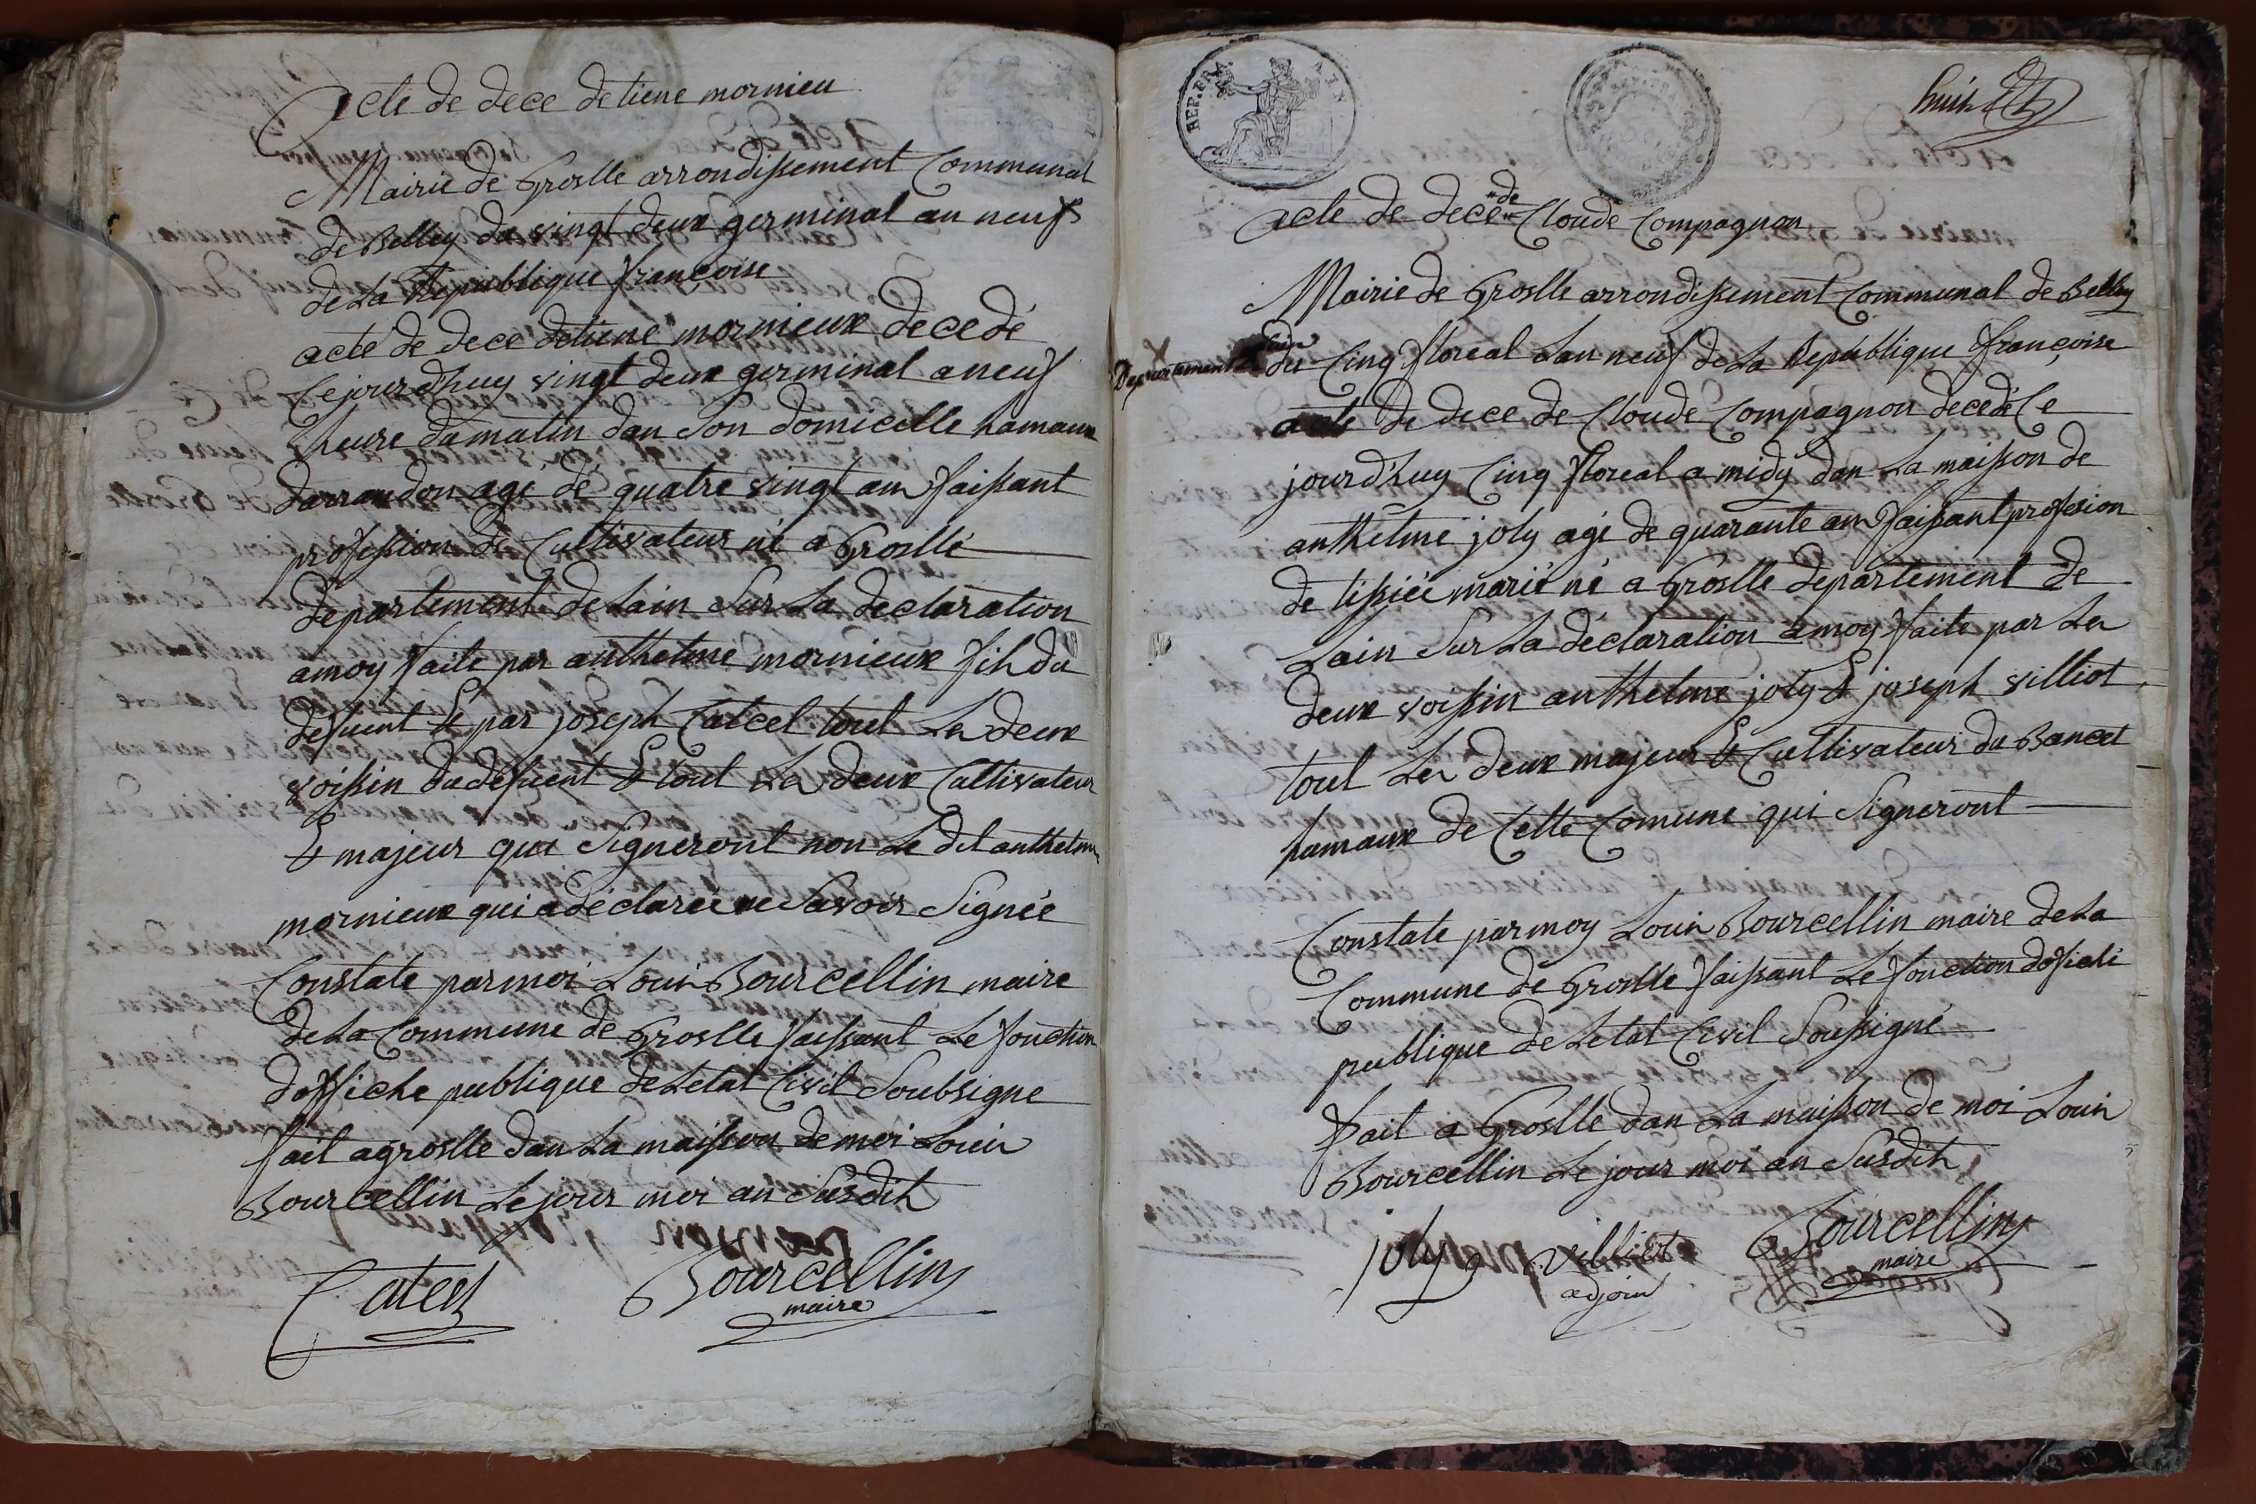 acte de dece detiene mornieu
Mairie de Groslle arrondissement Communal
de Belley du vingt deux germinal an neuf
de La Republique françoise
acte de dece detiene mornieux decedé
Cejourdhuy vingt deux germinal a neuf
heure du matin dan Son domicelle hamaux
darrandon agé de quatre vingt an faissant
profession de Cultivateur né a Grosllé
departement de Lain Sur La declaration
amoy faite par anthelme mornieux fih du
defuent & par joseph Catcel tout Les deux
voissin dudefuent & tout Les deux Cultivateur
& majeur qui Signeront non Le dit anthelme
mornieux qui adéclarée ne Savoir Signée
Constate parmoi Louis Bourcellin maire
de La Commune de Groslle faissant Le fonction
doffiche publique de Letat Civil Soubsigne
fait agroslle dan La maisson de moi Louis
Bourcellin Le jour moi an Susdit
Catcel Bourcellin
maire
REP. FRA.
huit
acte de dece de Cloude Compagnon
Mairie de Groslle arrondissement Communal de Belley
Departement de Lain du Cinq floreal Lan neuf de La Republique françoise
acte de dece de Cloude Compagnon decedé Ce
jourdhuy Cinq floreal a midy dan La maisson de
anthelme joly agé de quarante an faissant profesion
de tissiée marié né a Groslle departement de
Lain Sur La déclaration amoy faite par Les
deux voissin anthelme joly & joseph villiot
tout Les deux majeur & Cultivateur du Bancet
hamaux de Cette Comune qui Signeront
Constate parmoy Louis Bourcellin maire de La
Commune de Groslle faissant Le fonction dofichi
publique de Letat Civil Soussigné
fait a Groslle dan La maisson de moi Louis
Bourcellin Le jour moi an Susdit
joly villiot Bourcellin
adjoin maire